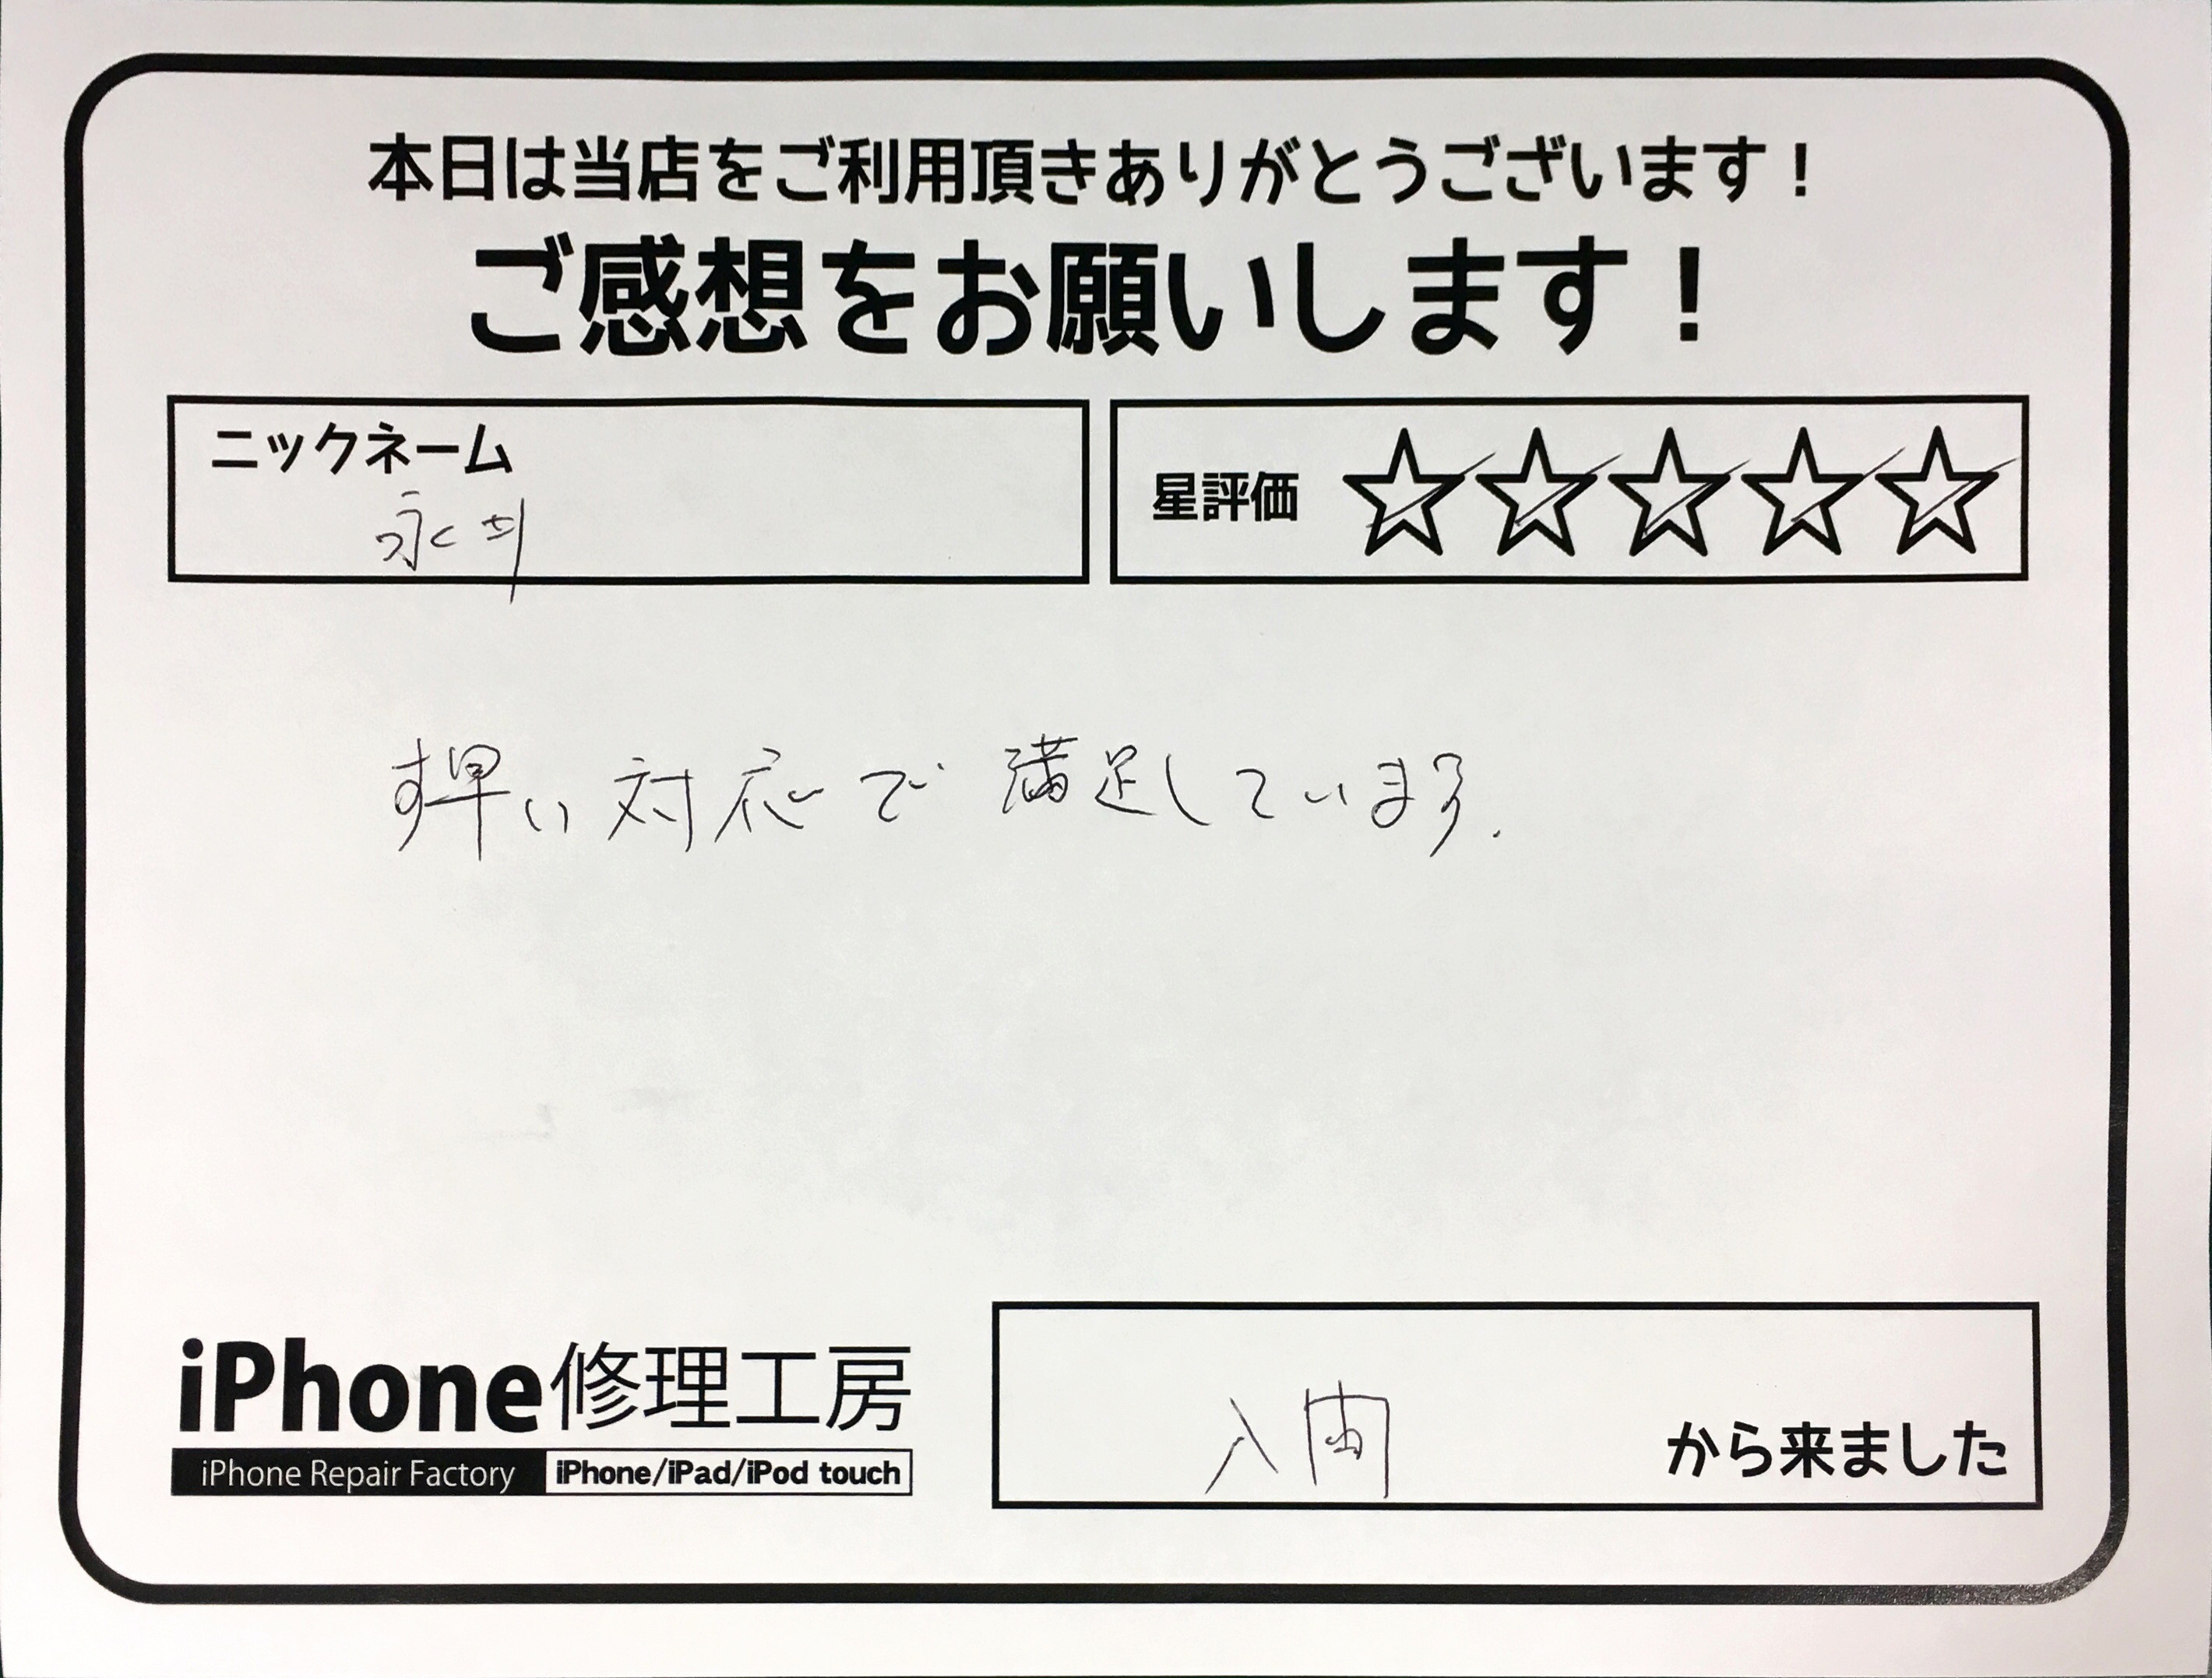 本日は当店をご利用頂きありがとうございます!
ご感想をお願いします!
ニックネーム
星評価 ☆☆☆☆☆
す早い対応で満足しています.
iPhone修理工房
iPhone Repair Factory iPhone/iPad/iPod touch
入間 から来ました